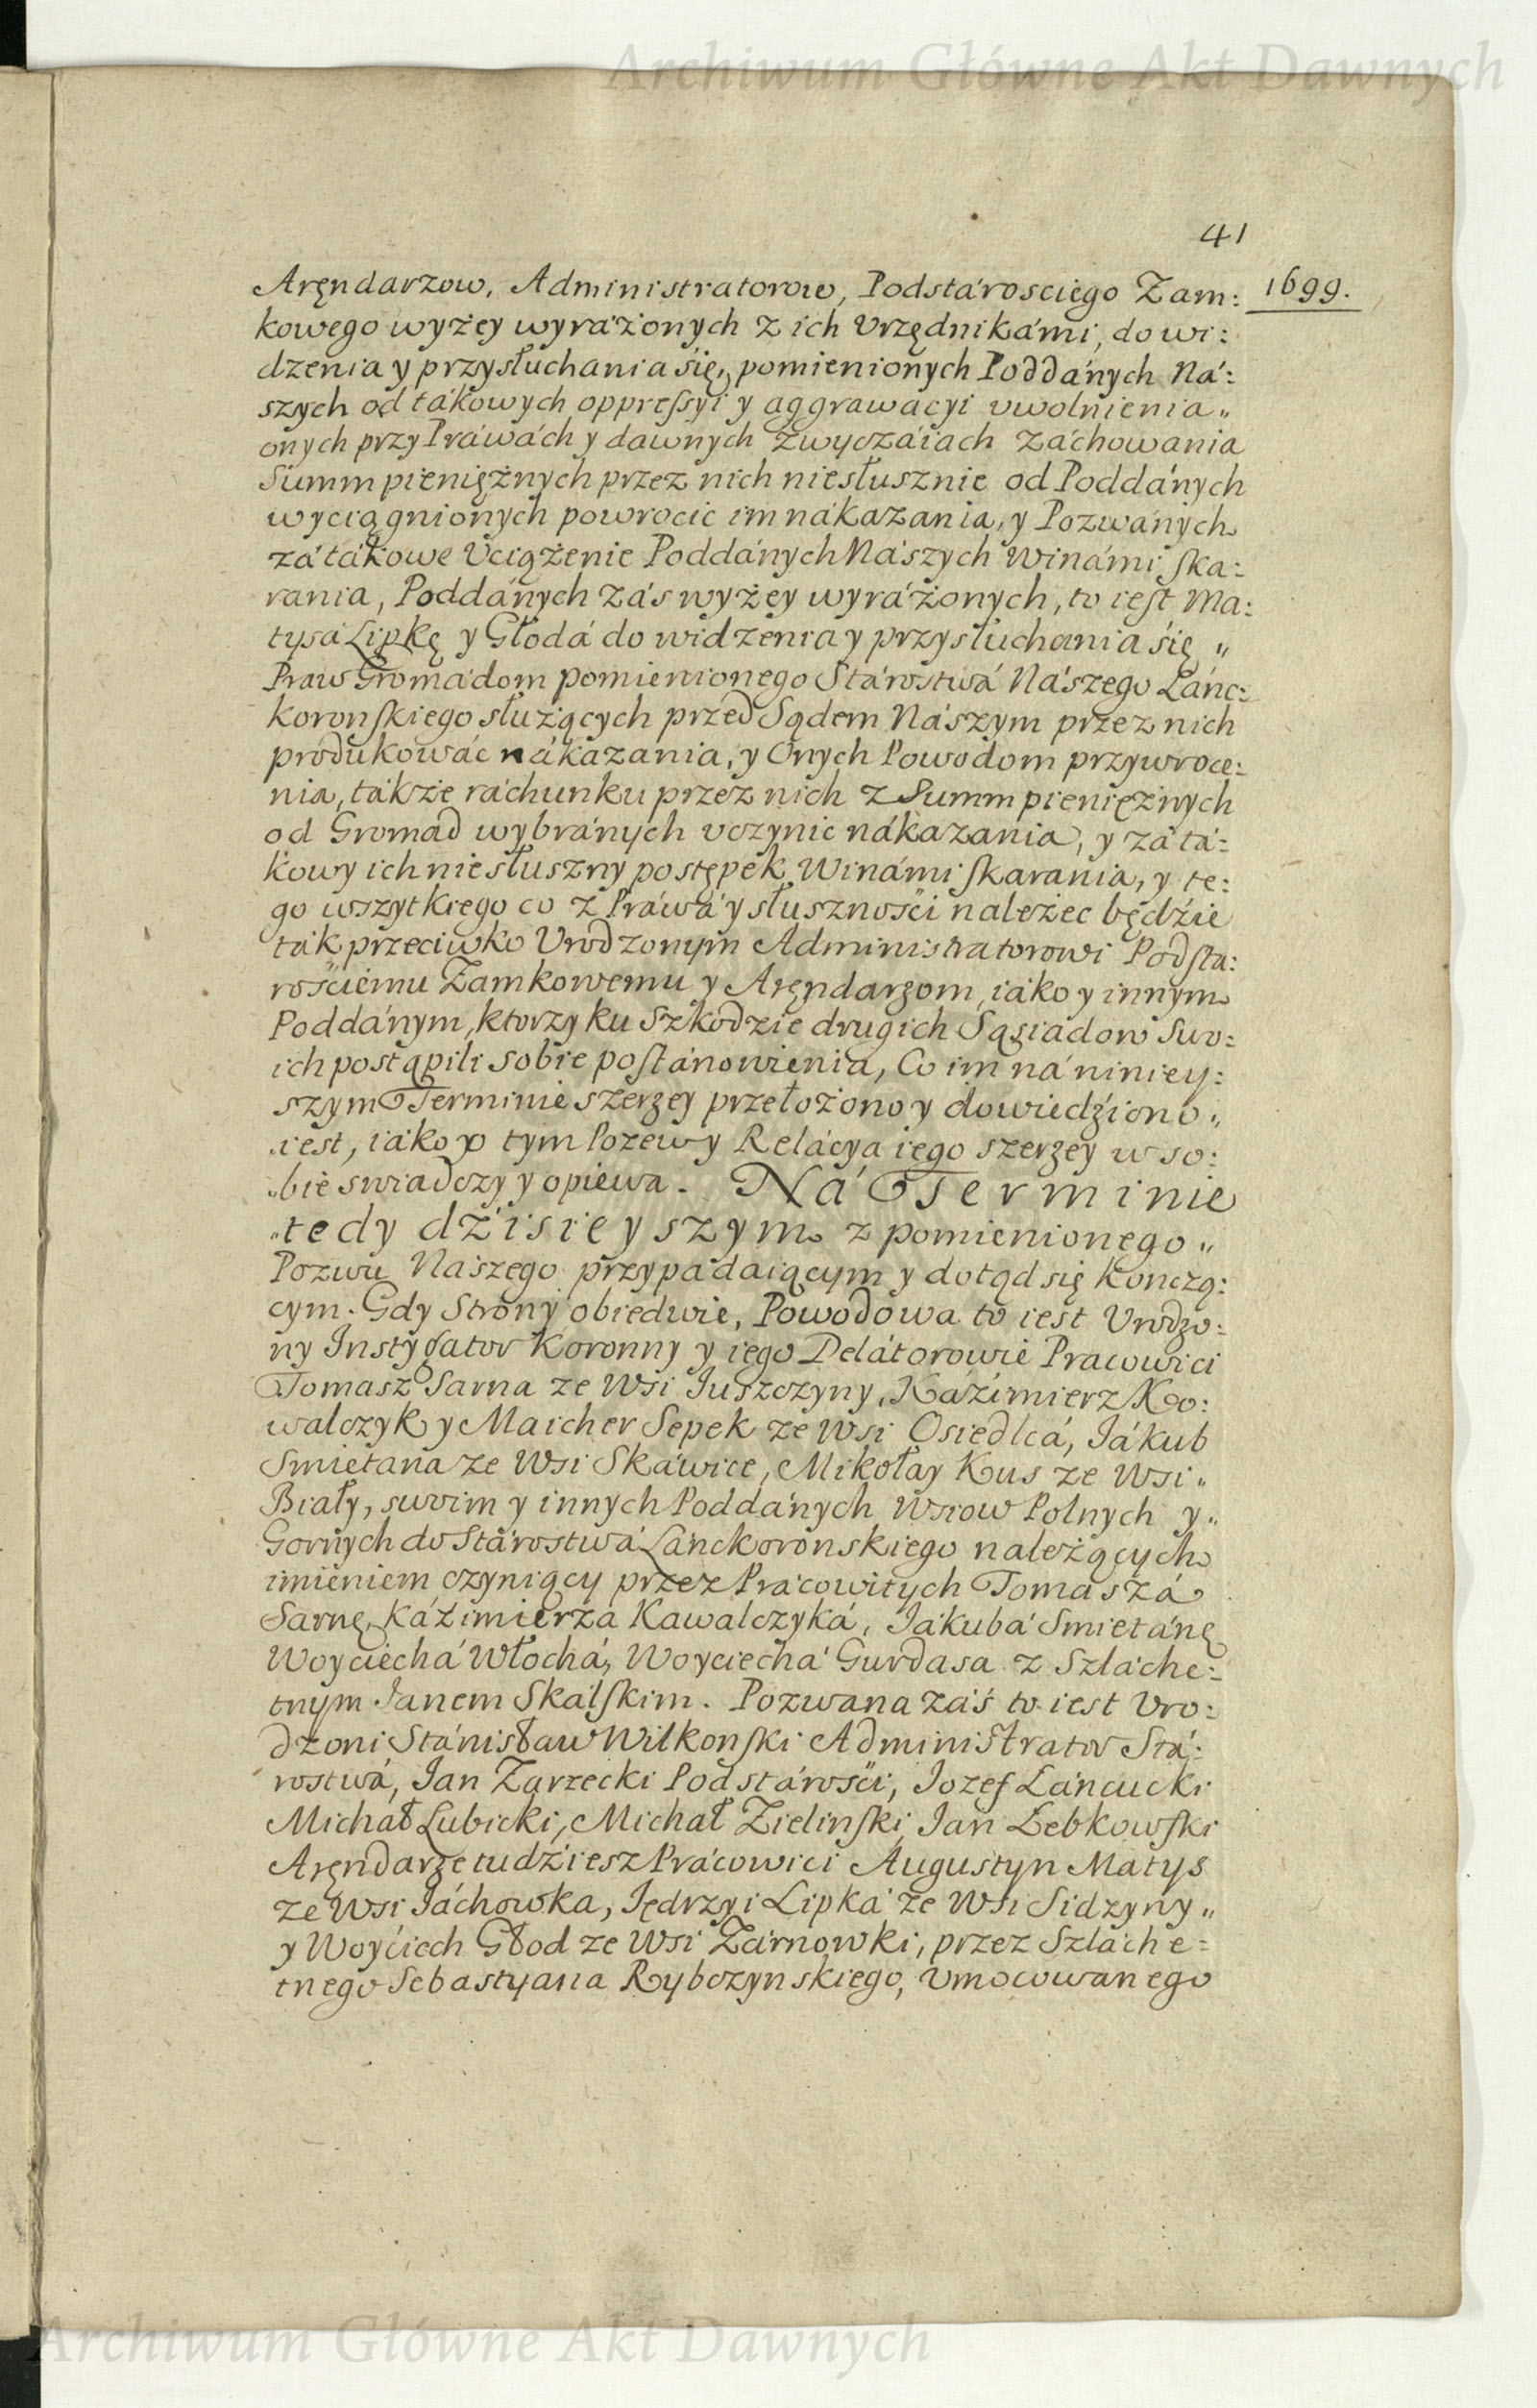 Archiwum Główne Akt Dawnych
41
1699.
Aręndarzow, Administratorow, Podstárosciego Zam:
kowego wyżey wyráżonych z ich Vrzędnikámi, do wi:
dzenia y przysłuchania się, pomienionych Poddánych Ná:
szych od tákowych oppreſsyi y aggrawácyi vwolnienia„
onych przy Práwách y dawnych zwyczáiach záchowania
Summ pieniężnych przez nich niesłusznie od Poddánych
wyciągnionych powrocic im nákazania, y Pozwánych
zá tákowe Vciążenie Poddánych Nászych Winámi ſka:
rania, Poddánych zás wyżey wyráżonych, to iest Ma:
tysá Lipkę y Głodá do widzenia y przysłuchania się „
Praw Gromádom pomienionego Stárostwá Nászego Lánc:
koronſkiego służących przed Sądem Nászym przez nich
produkowác nákazania, y Onych Powodom przywroce:
nia, tákże ráchunku przez nich z Summ pieniężnych
od Gromad wybránych vczynic nákazania, y zá tá:
kowy ich niesłuszny postępek Winámi ſkarania, y te:
go wszytkiego co z Práwá y słusznośći należec będźie
ták przeciwko Vrodzonym Administratorowi Podſta:
rośćiemu Zamkowemu y Aręndarzom, iáko y innym
Poddánym, ktorzy ku Szkodzie drugich Sąsiadow Swo:
ich postąpili sobie poſtánowienia, Co im ná niniey:
szym Terminie szerzey przełożono y dowiedźiono„
iest, iáko o tym Pozew y Relácya iego szerzey w so:
bie swiadczy y opiewa. Ná Terminie
„tedy dźisieyszym z pomienionego„
Pozwu Naszego przypádaiącym y dotąd się konczą:
cym. Gdy Strony obiedwie, Powodowa to iest Vrodzo:
ny Instygator Koronny y iego Delátorowie Pracowici
Tomasz Sarna ze Wsi Juszczyny, Káźimierz Ko:
walczyk y Maicher Sepek ze Wsi Osiedlcá, Jákub
Smietana ze Wsi Skáwice, Mikołay Kus ze Wsi„
Biały, swoim y innych Poddánych Wsiow Polnych y„
Gornych do Stárostwá Lánckoronskiego należących
imieniem czyniący przez Prácowitych Tomaszá
Sarnę, Káźimierza Kawalczyká, Jákubá Smietánę
Woyciechá Włochá, Woyciechá Gurdasa z Szláche:
tnym Janem Skálſkim. Pozwana záś to iest Vro:
dzoni Stánisław Wilkonſki Administrator Stá:
rostwá, Jan Zarzecki Podstárośći, Jozef Láncucki
Michał Lubicki, Michał Zielinſki, Jan Łebkowſki
Aręndarze tudźiesz Prácowici Augustyn Matys
ze Wsi Jáchowka, Jędrzyi Lipká ze Wsi Sidzyny„
y Woyćiech Głod ze Wsi Zárnowki, przez Szláche:
tnego Sebastyana Rybczynskiego, Vmocowanego
Archiwum Główne Akt Dawnych